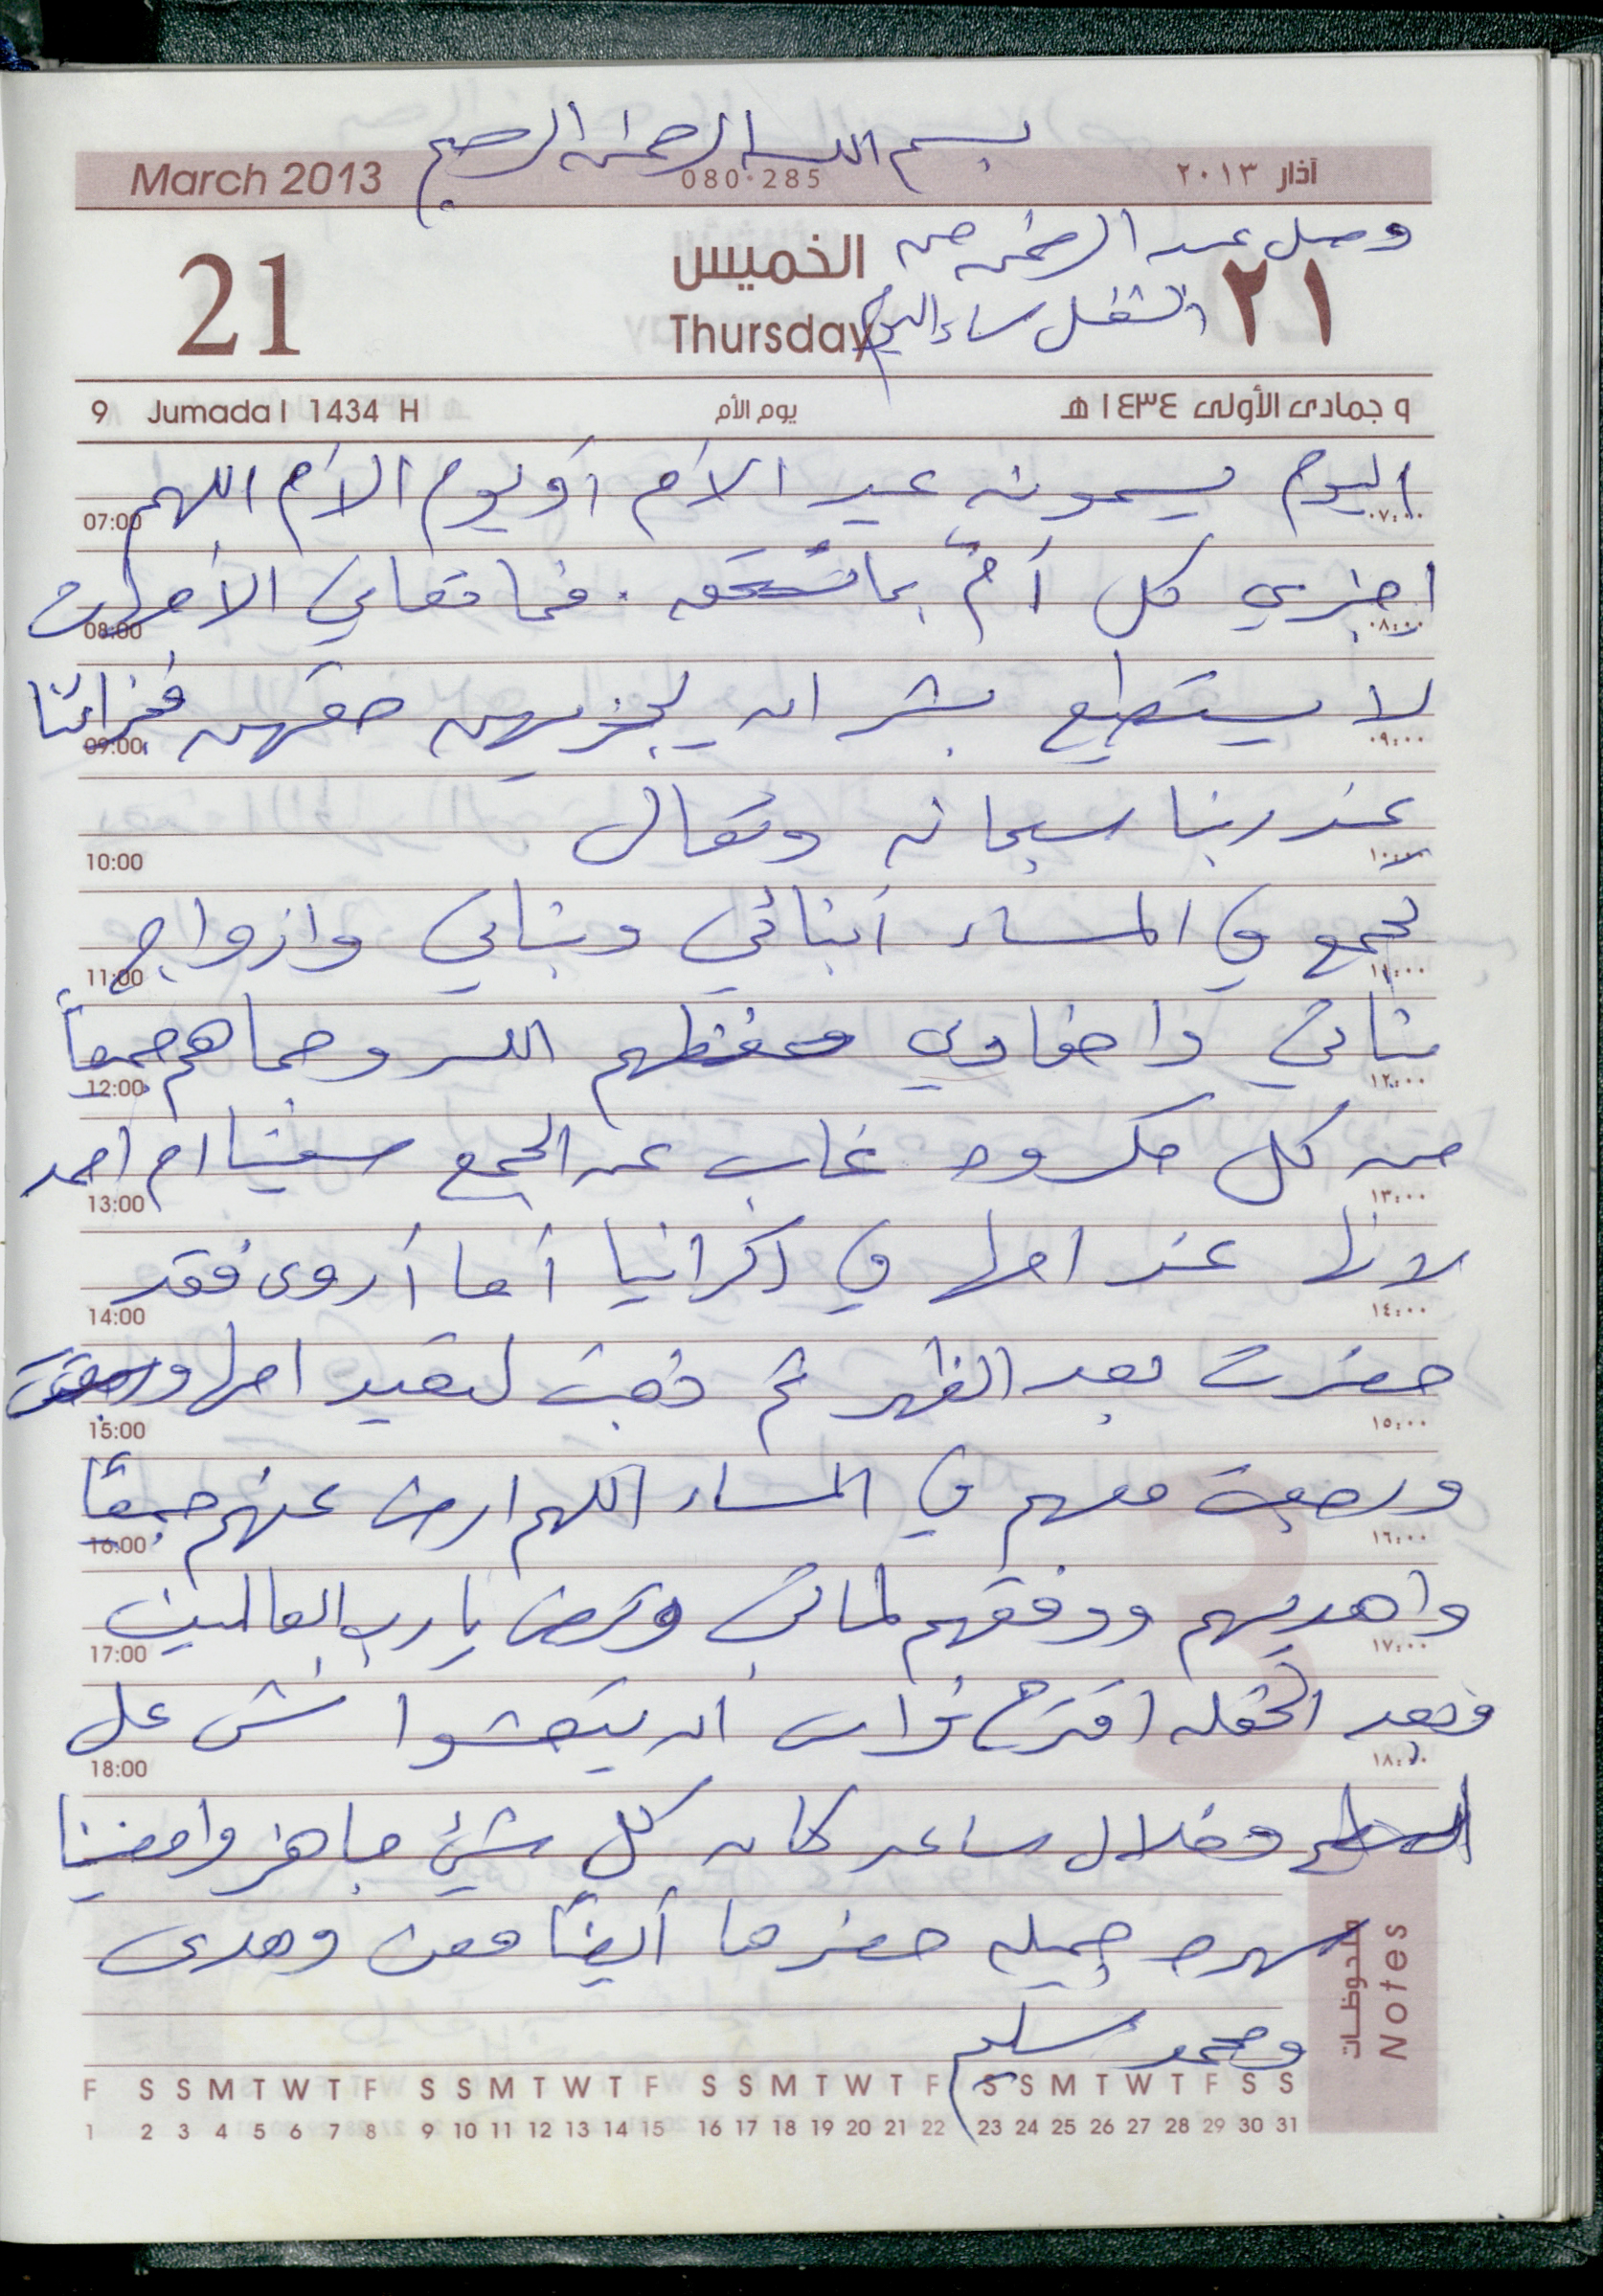 بسم الله الرحمن الرحيم
March 2013 080-285 آذار ٢٠١٣
وصل عبد الرحمن من
21 الخميس ٢١
الشغل مساء اليوم
Thursday
9 Jumada I 1434 H يوم الأم ٩ جمادى الأولى ١٤٣٤ هـ
اليوم يسمونه عيد الأم أو يوم الأم اللهم
07:00 ٠٧:٠٠
اجزي كل أمّ بما تستحقه . فما تعاني الأمهات
08:00 ٠٨:٠٠
لا يستطيع بشر ان يجزيهن حقهن فجزائنا
09:00 ٠٩:٠٠
عند ربنا سبحانه وتعالى
10:00 ١٠:٠٠
تجمع في المساء أبنائي وبناتي وازواج
11:00 ١١:٠٠
بناتي واحفادي حفظهم الله وحماهم جميعاً
12:00 ١٢:٠٠
من كل مكروه غاب عن الجمع سفيتا ام احمد
13:00 ١٣:٠٠
لانها عند امها في اكرانيا أما أروى فقد
14:00 ١٤:٠٠
حضرت بعد الظهر ثم ذهبت لتعيد امها
15:00 ١٥:٠٠
ورجعت معهم في المساء اللهم ارض عنهم جميعًا
16:00 ١٦:٠٠
واهديهم ووفقهم لما تحب وترضى يا رب العالمين
17:00 ١٧:٠٠
وبعد الحفله اقترح نواف ان يتعشوا نش على
18:00 ١٨:٠٠
السطح وخلال ساعه كان كل شيئ جاهز وامضينا
سهره جميله حضرها أيضًا معن وهدى
ومحمد سليم
ملحوظات Notes
F S S M T W T F S S M T W T F S S M T W T F S S M T W T F S S
1 2 3 4 5 6 7 8 9 10 11 12 13 14 15 16 17 18 19 20 21 22 23 24 25 26 27 28 29 30 31